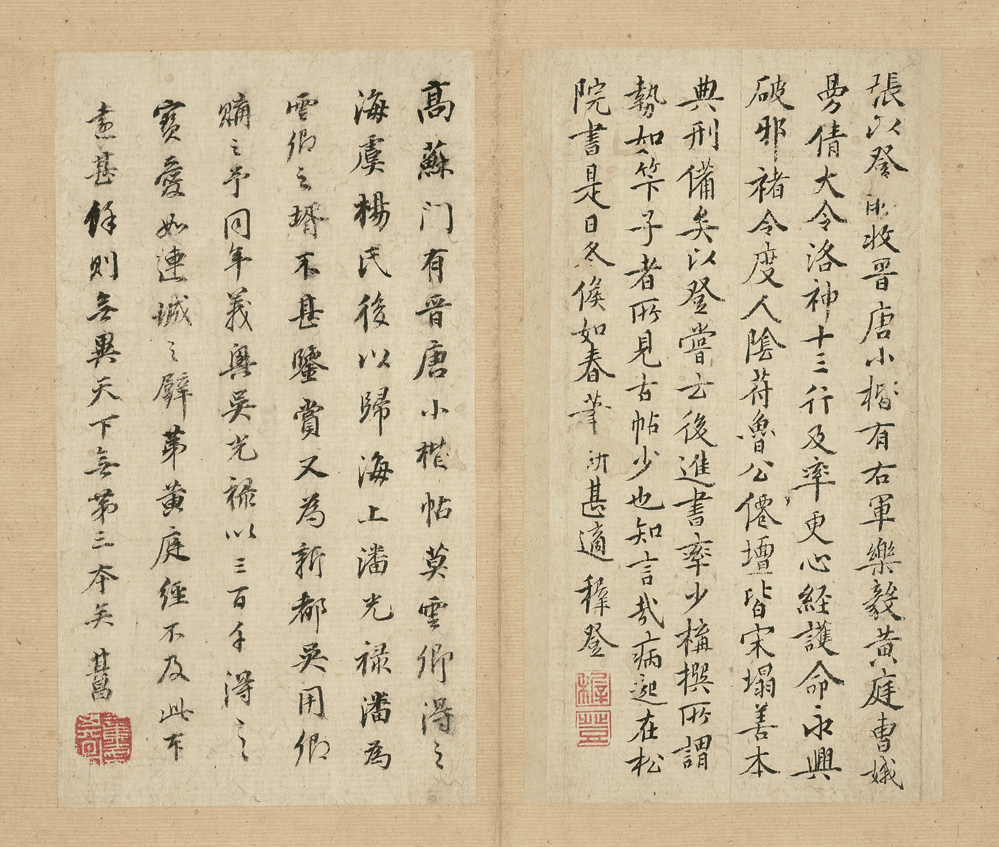 張以登所收晉唐小楷有右軍樂毅黃庭曹娥
曼倩大令洛神十三行及率更心経護命永興
破邪褚令度人陰苻魯公僊壇皆宋塌善本
典刑備矣以登嘗云後進書率少構撰所謂
勢如竿子者所見古帖少也知言哉病起在松
院書是日冬候如春筆研甚適稺登
高蘇门有晋唐小楷帖莫雲卿淂之
海虞楊氏後以歸海上潘光禄潘為
雲卿之壻不甚鑒賞又為新都吳用卿
購之予同年義興吳光禄以三百千淂之
寳愛如連城之辟第黃庭經不及此本
遠甚餘則無異天下無第三本矣 其昌